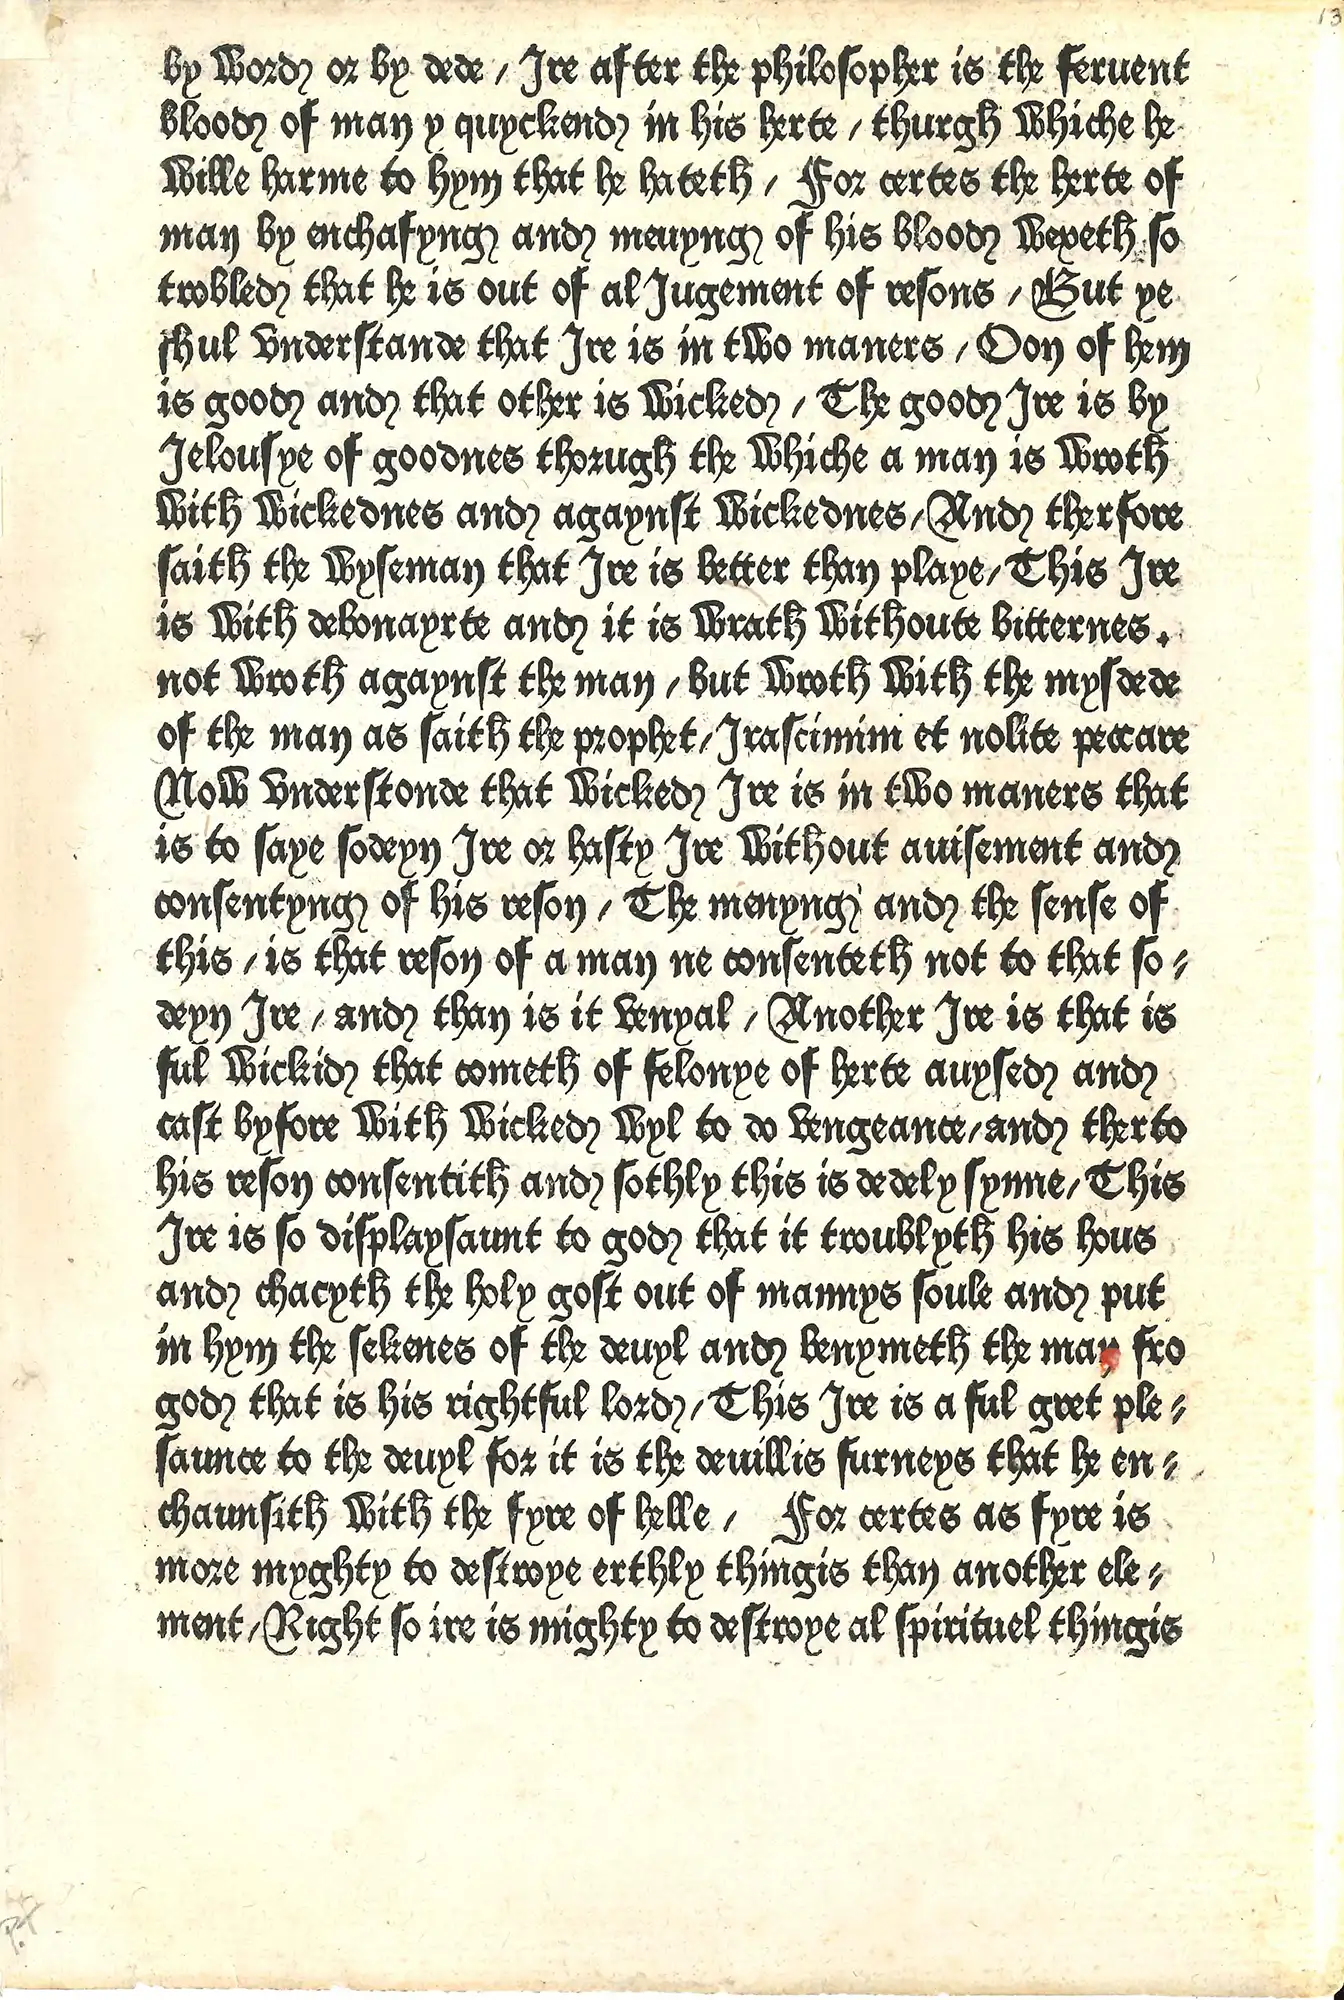 13
by word or by dede / Ire after the philosopher is the feruent
blood of man y quyckend in his herte / thurgh whiche he
wille harme to hym that he hateth / For certes the herte of
man by enchafyng and meuyng of his blood wexeth so
trobled that he is out of al Jugement of resons / But ye
shul vnderstande that Ire is in two maners / Oon of hem
is good and that other is wicked / The good Ire is by
Jelousye of goodnes thorugh the whiche a man is wroth
with wickednes and agaynst wickednes / And therfore
saith the wyseman that Ire is better than playe / This Ire
is with debonayrte and it is wrath withoute bitternes .
not wroth agaynst the man / but wroth with the mysdede
of the man as saith the prophet / Irascimini et nolite peccare
Now vnderstonde that wicked Ire is in two maners that
is to saye sodeyn Ire or hasty Ire without auisement and
consentyng of his reson / The menyng and the sense of
this / is that reson of a man ne consenteth not to that so⸗
deyn Ire / and than is it venyal / Another Ire is that is
ful wickid that cometh of felonye of herte auysed and
cast byfore with wicked wyl to do vengeance / and therto
his reson consentith and sothly this is dedely synne / This
Ire is so displaysaunt to god that it troublyth his hous
and chacyth the holy gost out of mannys soule and put
in hym the sekenes of the deuyl and benymeth the man fro
god that is his rightful lord / This Ire is a ful gret ple⸗
saunce to the deuyl for it is the deuillis furneys that he en⸗
chaunsith with the fyre of helle / For certes as fyre is
more myghty to destroye erthly thingis than another ele⸗
ment / Right so ire is mighty to destroye al spirituel thingis